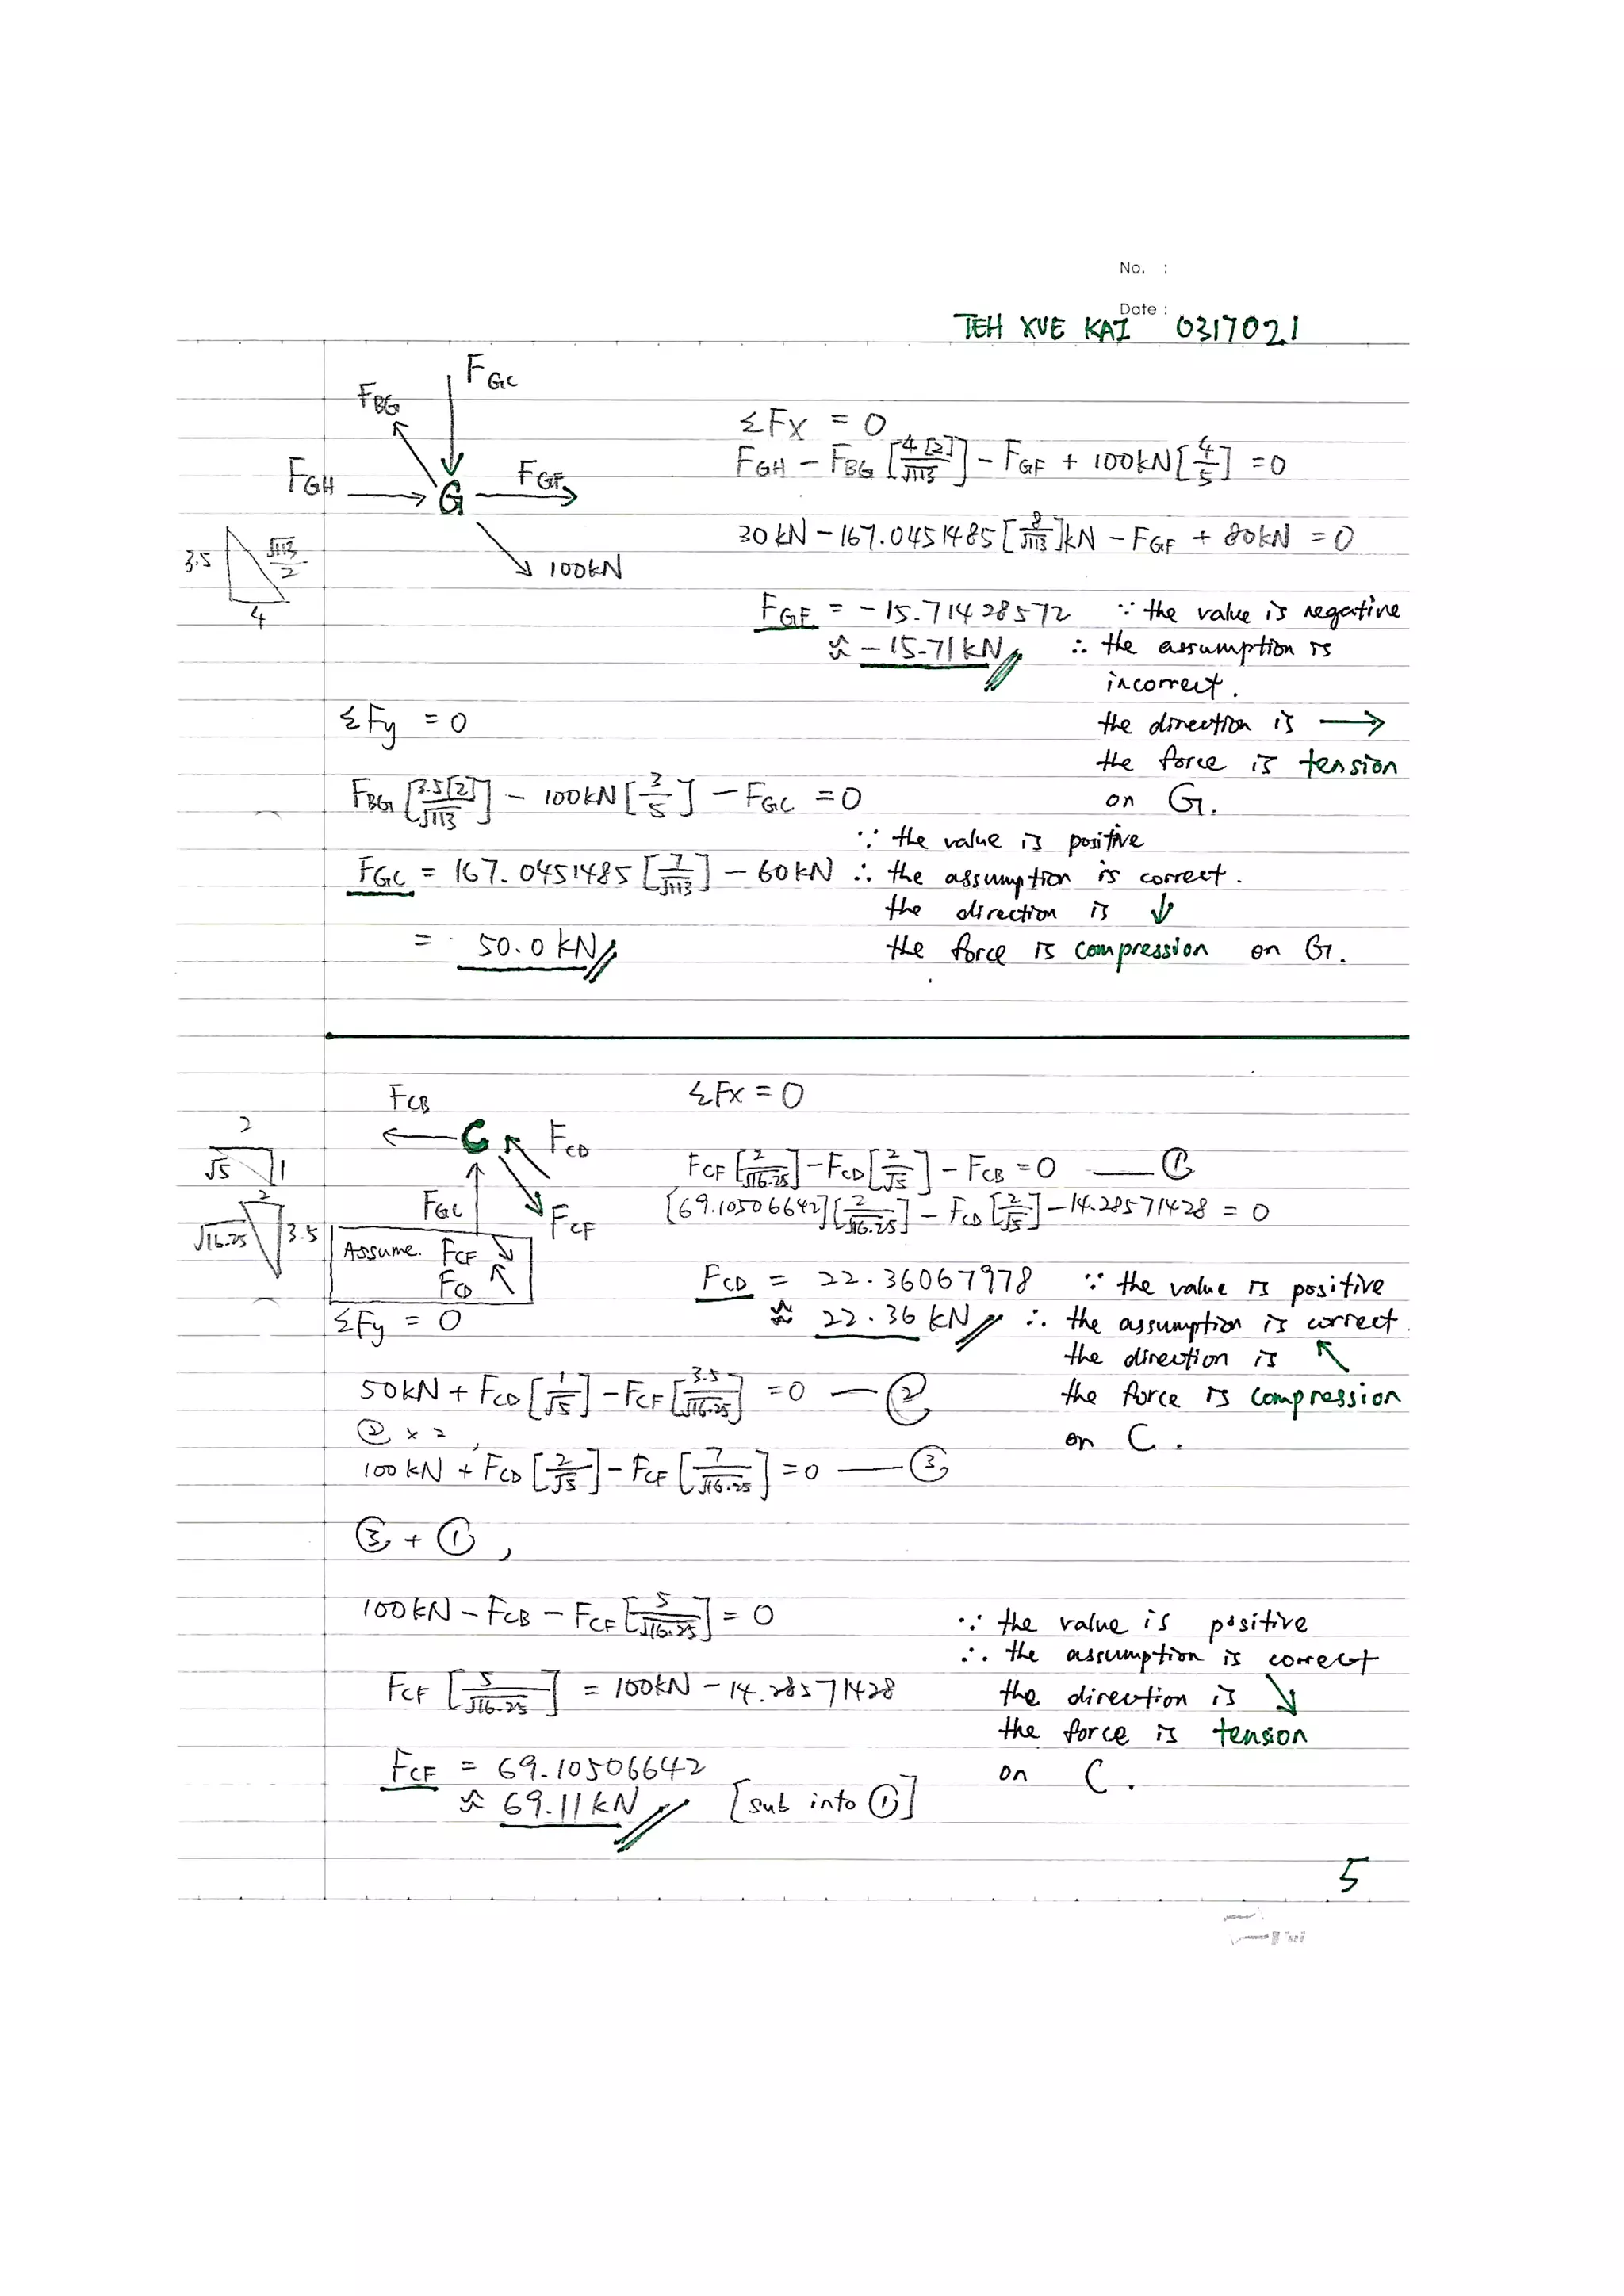 No. :
Date :
TEH XUE KAI 0317021
F_GC
F_BG
F_GH
G
F_GF
100kN
3.5
√113/2
4
ΣFx = 0
F_GH - F_BG [4[2]/√113] - F_GF + 100kN[4/5] = 0
30kN - 167.0451485[8/√113]kN - F_GF + 80kN = 0
F_GF = -15.71428572 ∵ the value is negative
≈ -15.71kN ∴ the assumption is
incorrect.
the direction is →
the force is tension
on G.
ΣFy = 0
F_BG [3.5[2]/√113] - 100kN[3/5] - F_GC = 0
∵ the value is positive
F_GC = 167.0451485 [7/√113] - 60kN ∴ the assumption is correct.
the direction is ↓
= 50.0kN the force is compression on G.
F_CB
C
F_CD
F_GC
F_CF
2
√5
1
2
√16.25
3.5
Assume. F_CF ↘
F_CD ↖
ΣFx = 0
F_CF [2/√16.25] - F_CD[2/√5] - F_CB = 0 — ①
[69.10506642][2/√16.25] - F_CD [2/√5] - 14.28571428 = 0
F_CD = 22.36067978 ∵ the value is positive
≈ 22.36kN ∴ the assumption is correct.
the direction is ↖
the force is compression
on C.
ΣFy = 0
50kN + F_CD [1/√5] - F_CF [3.5/√16.25] = 0 — ②
② x 2,
100kN + F_CD [2/√5] - F_CF [7/√16.25] = 0 — ③
③ + ①,
100kN - F_CB - F_CF [5/√16.25] = 0
F_CF [5/√16.25] = 100kN - 14.28571428
F_CF = 69.10506642
≈ 69.11kN [sub into ①]
∵ the value is positive
∴ the assumption is correct
the direction is ↘
the force is tension
on C.
5